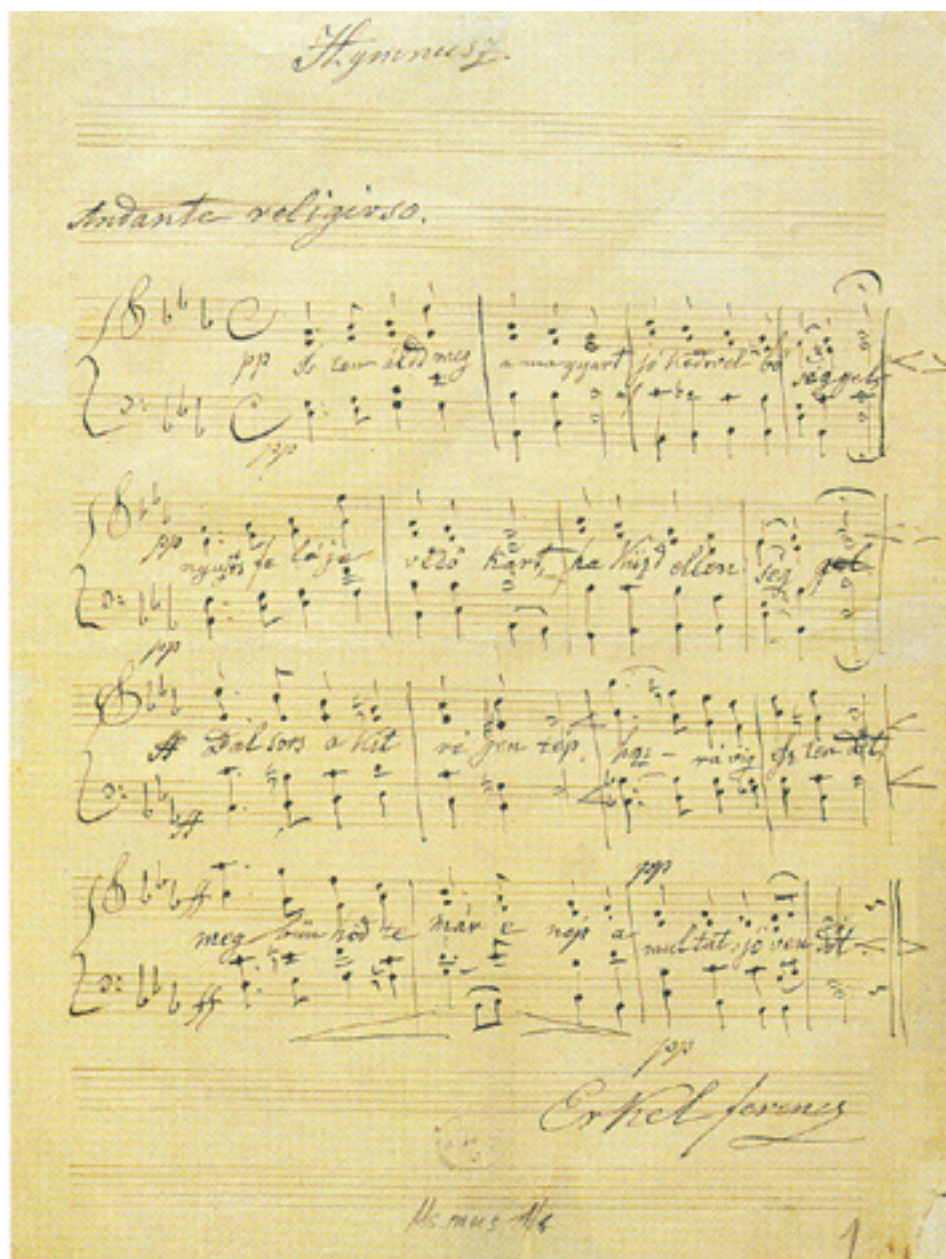 Hymnusz.
Andante religioso.
pp Is ten áldd meg a magyart jó kedvel bő séggel
pp
pp nyujts fe léje védő kart, ha küzd ellen ség gel
pp
ff Bal sors a kit ré gen tép, hoz – rá víg esz ten dőt,
ff
ff pp
meg bün hőd te már e nép a multat, jö ven dőt
ff
pp
Erkel Ferencz
Ms. mus
1